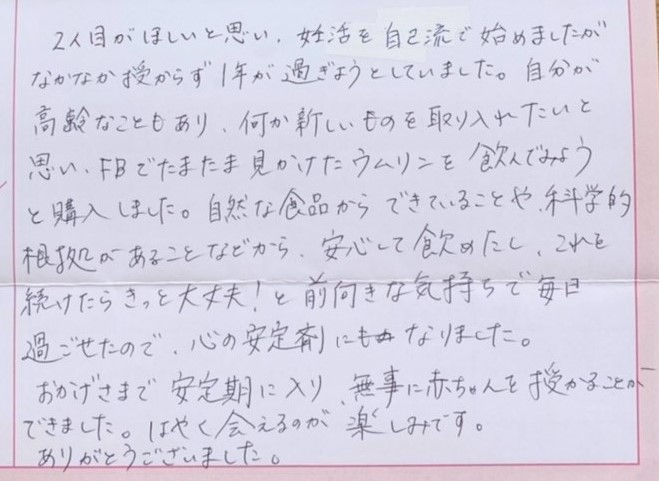 2人目がほしいと思い、妊活を自己流で始めましたが
なかなか授からず1年が過ぎようとしていました。自分が
高齢なこともあり、何か新しいものを取り入れたいと
思い、FBでたまたま見かけたウムリンを飲んでみよう
と購入しました。自然な食品からできていることや、科学的
根拠があることなどから、安心して飲めたし、これを
続けたらきっと大丈夫!と前向きな気持ちで毎日
過ごせたので、心の安定剤にもなりました。
おかげさまで安定期に入り、無事に赤ちゃんを授かることが
できました。はやく会えるのが楽しみです。
ありがとうございました。